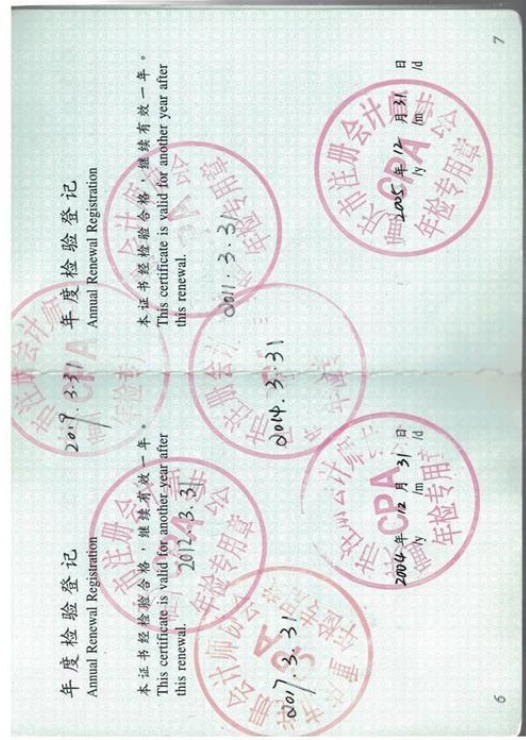 年度检验登记
Annual Renewal Registration
本证书经检验合格，继续有效一年。
This certificate is valid for another year after
this renewal.
2012.3.31
2017.3.31
2004年12月31日
/y /m /d
CPA
年检专用章
6
2019.3.31
2014.3.31
年度检验登记
Annual Renewal Registration
本证书经检验合格，继续有效一年。
This certificate is valid for another year after
this renewal.
2011.3.31
2005年12月31日
/y /m /d
市注册会计师
CPA
年检专用章
7